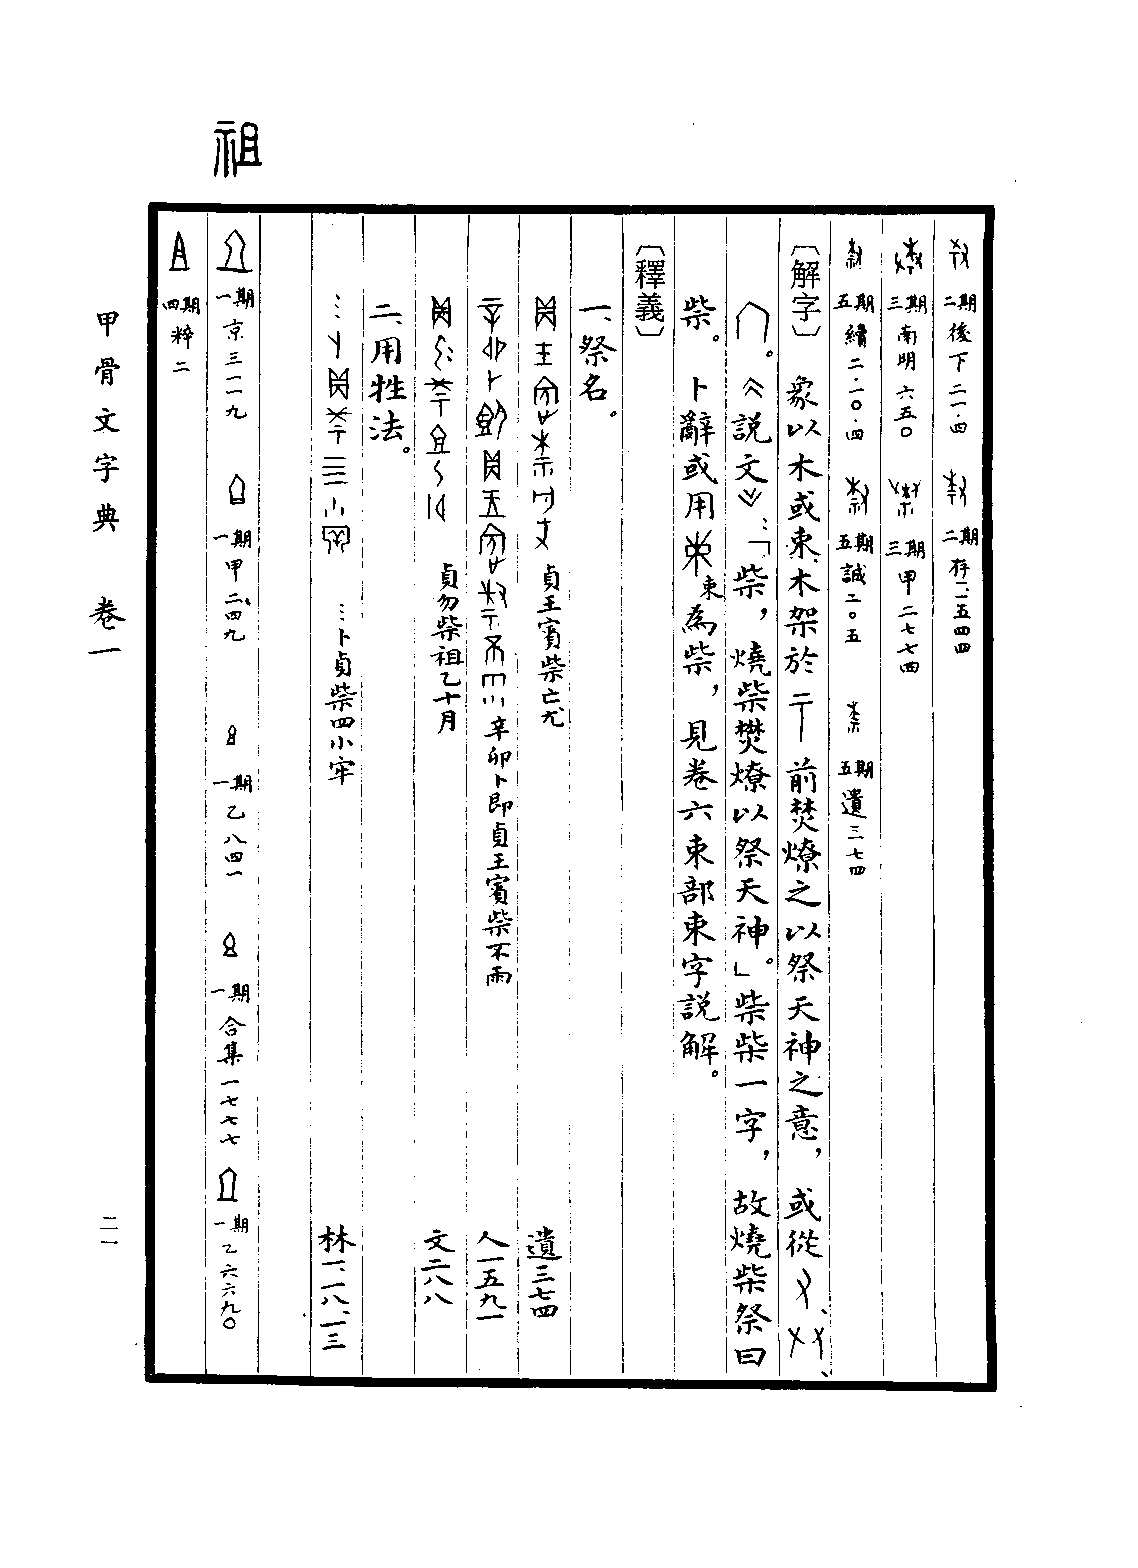 祖
二期 後下二一·四
二期 存一·一五四四
三期 南明六五〇
三期 甲二七七四
五期 續二·一〇·四
五期 誠二〇五
五期 遺三七四
〔解字〕 象以木或束木架於 前焚燎之以祭天神之意，或從 、 、
。《說文》：「祡，燒祡燓燎以祭天神。」祡柴一字，故燒柴祭曰
祡。卜辭或用 束 為祡，見卷六束部束字說解。
〔釋義〕
一、祭名。
貞王賓祡亡尤 遺三七四
辛卯卜即貞王賓祡不雨 人一五九一
貞勿祡祖乙十月 文二八八
二、用牲法。
…卜貞祡四小牢 林一·二八·一三
一期 京三一一九
一期 甲二·四九
一期 乙八四一
一期 合集一七七七
一期 乙六六九〇
四期 粹二
甲骨文字典 卷一
二一